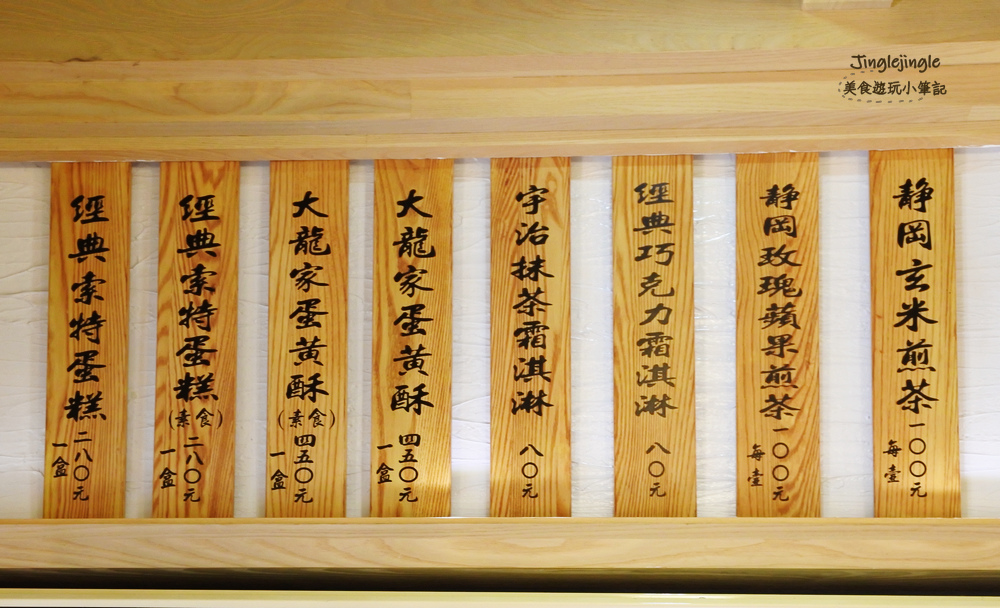 Jinglejingle
美食遊玩小筆記
靜岡玄米煎茶
一〇〇元
每壹
靜岡玫瑰蘋果煎茶
一〇〇元
每壹
經典巧克力霜淇淋
八〇元
宇治抹茶霜淇淋
八〇元
大龍家蛋黃酥
四五〇元
一盒
大龍家蛋黃酥
(素食)
四五〇元
一盒
經典索特蛋糕
(素食)
二八〇元
一盒
經典索特蛋糕
二八〇元
一盒